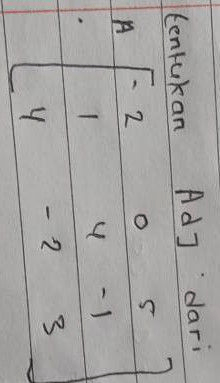 tentukan Adj dari
A
[-2 0 5
1 4 -1
4 -2 3]